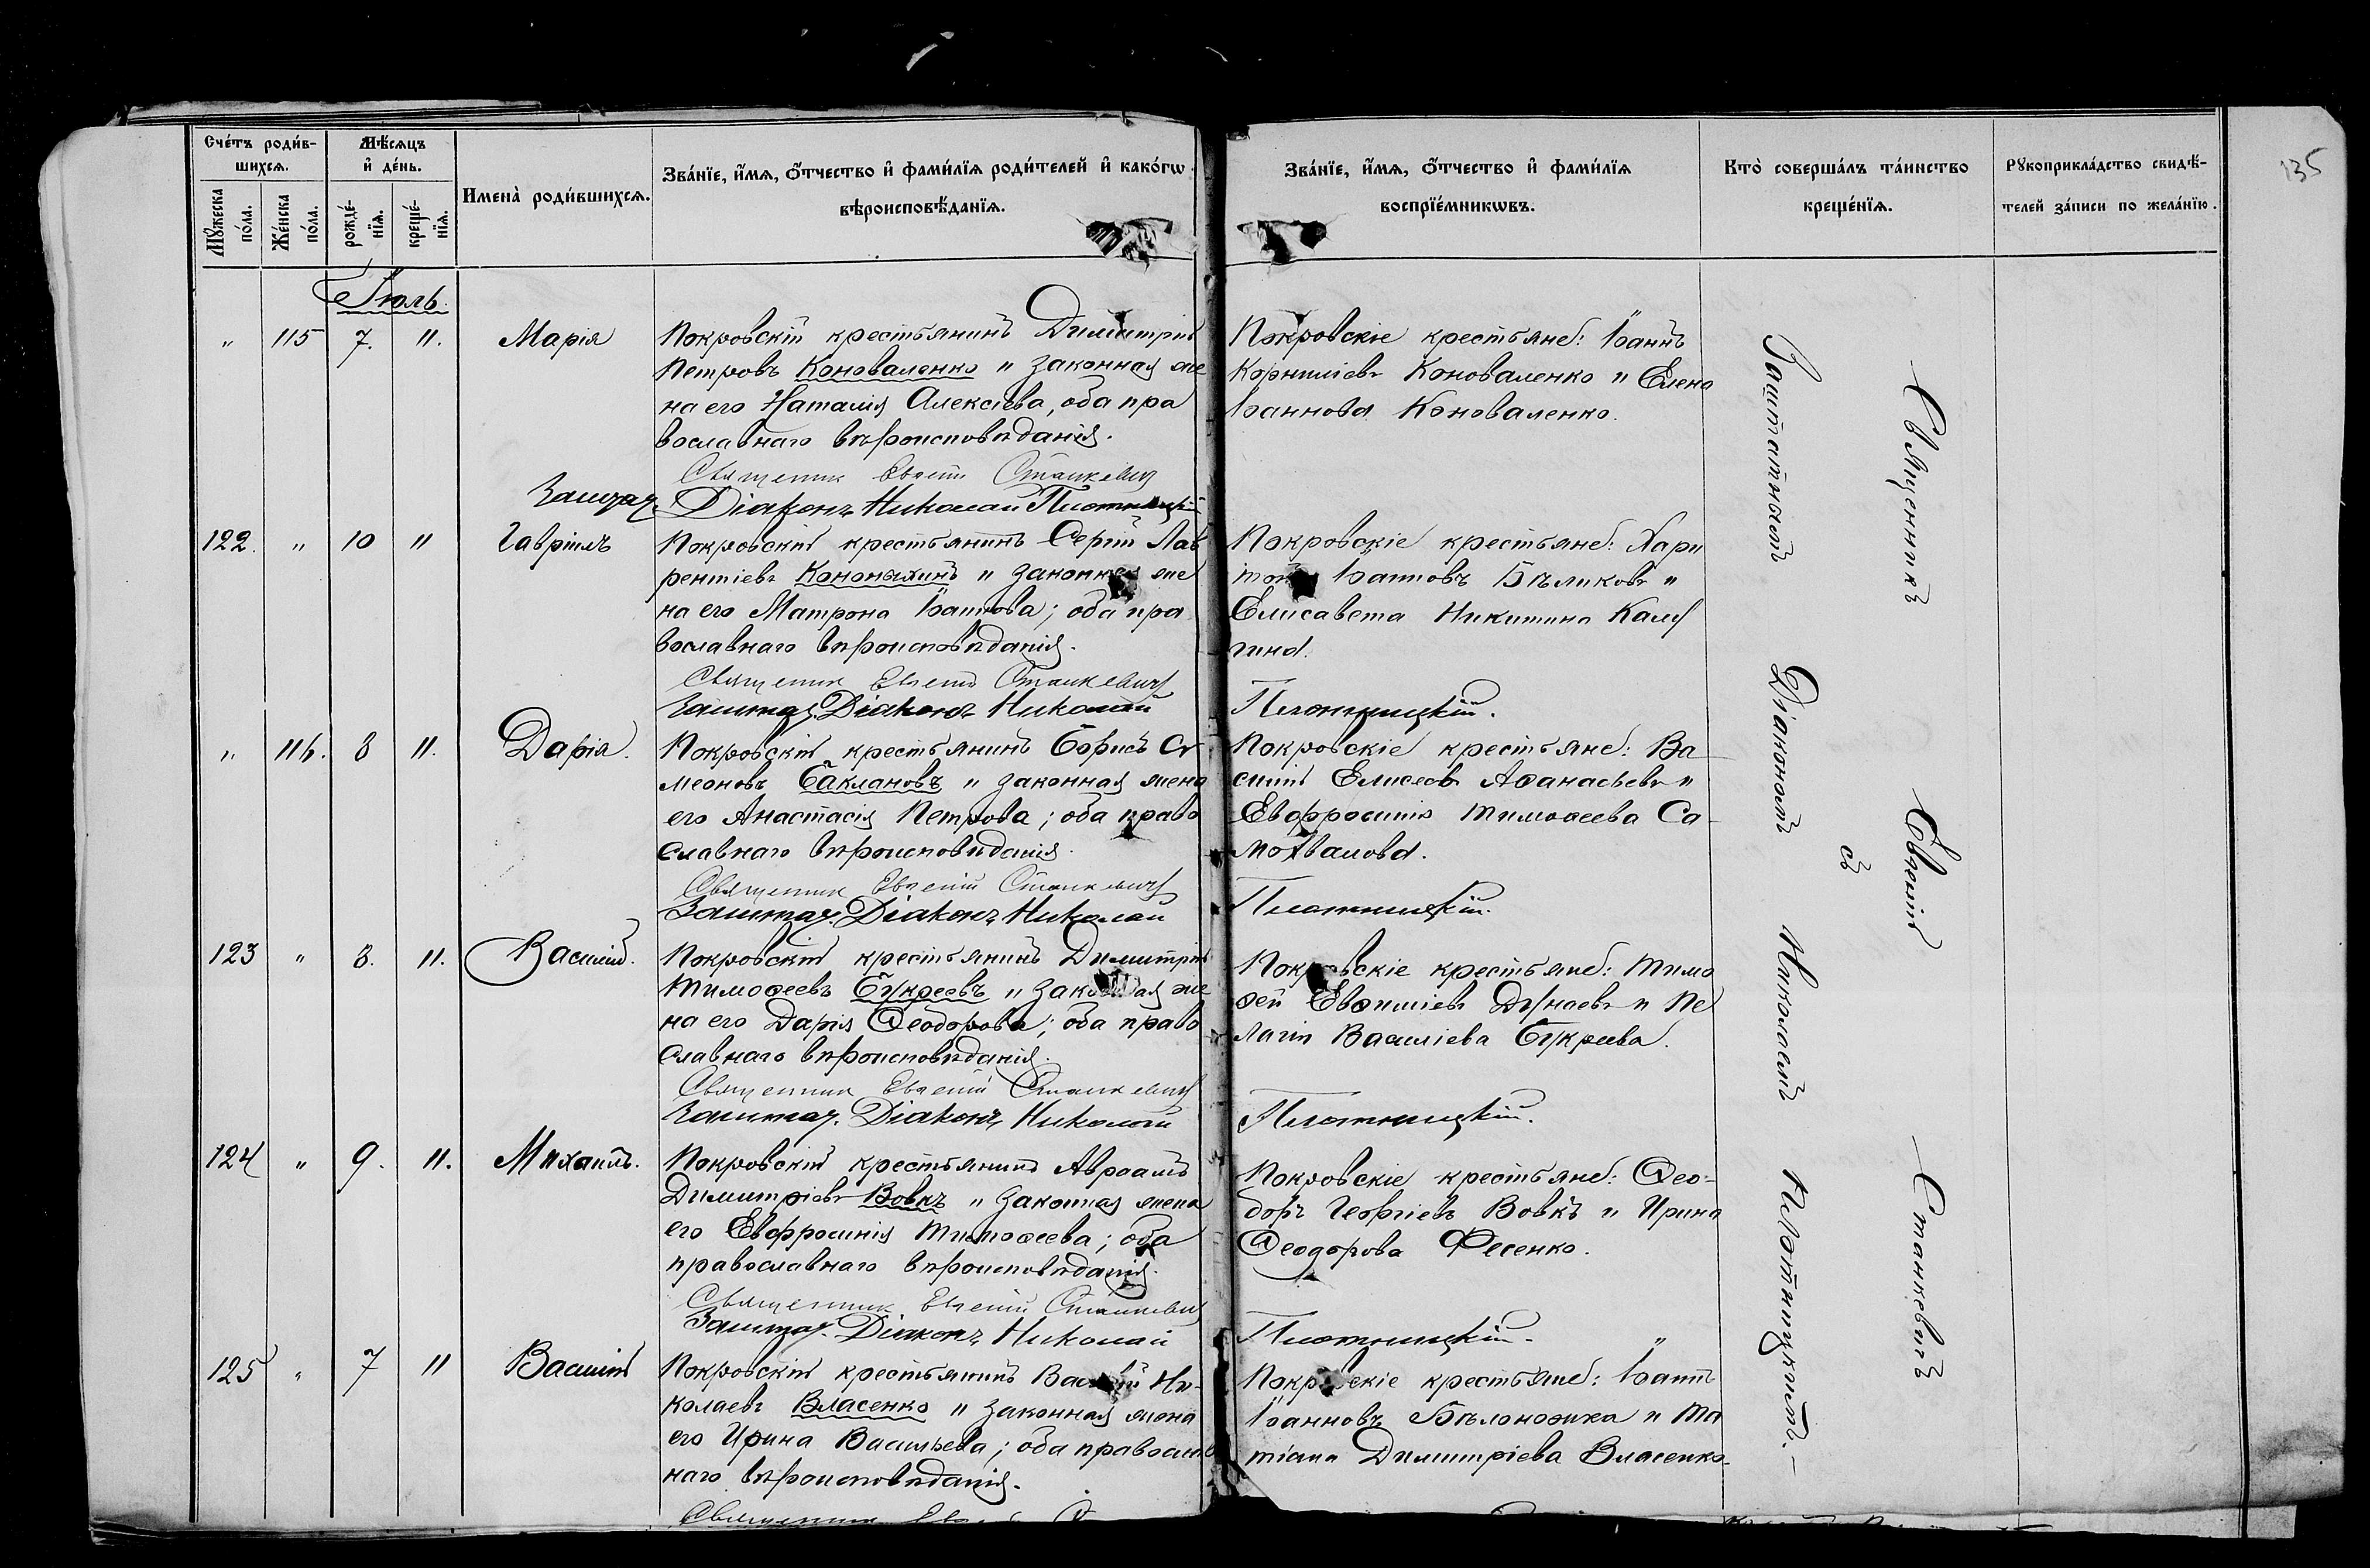 Счéтъ роди́в-
шихсѧ.
Мѣ́сѧцъ
и҆ де́нь.
Мꙋ́жеска
по́ла.
Же́нска
по́ла.
рожде́-
нїѧ.
креще́-
нїѧ.
Имена̀ роди́вшихсѧ.
Зва́нїе, и҆́мѧ, ѻ҆́тчество и҆ фами́лїѧ роди́телей и҆ како́гѡ
вѣроисповѣ́данїѧ.
Зва́нїе, и҆́мѧ, ѻ҆́тчество и҆ фами́лїѧ
воспрїе́мникѡвъ.
Кто̀ соверша́лъ та́инство
креще́нїѧ.
Рꙋкоприкла́дство свидѣ́-
телей за́писи по жела́нїю.
135
Іюль.
" 115 7. 11. Марія
Покровскій крестьянинъ Димитрій
Петровъ Коноваленко и законная же
на его Наталія Алексіева, оба пра
вославнаго вѣроисповѣданія.
Священник Евгеній Станкевич
Заштат. Діаконъ Николай Плотницкій
Покровскіе крестьяне: Іоаннъ
Корниліевъ Коноваленко и Елена
Іоаннова Коноваленко.
122. " 10 11 Гавріилъ
Покровскій крестьянинъ Сергій Лав
рентіевъ Кононыхинъ и законная же
на его Матрона Іоаннова; оба пра
вославнаго вѣроисповѣданія.
Священник Евгеній Станкевич
Заштат. Діаконъ Николай
Покровскіе крестьяне: Хари
тонъ Іоанновъ Бѣликовъ и
Елисавета Никитина Калу
гина.
Плотницкій.
" 116. 8 11. Дарія.
Покровскій крестьянинъ Борисъ Си
меоновъ Баклановъ и законная жена
его Анастасія Петрова; оба право
славнаго вѣроисповѣданія.
Священник Евгеній Станкевич
Заштат. Діаконъ Николай
Покровскіе крестьяне: Ва
силій Елисеевъ Аѳанасьевъ и
Евфросинія Тимоѳеева Са-
мохвалова.
Плотницкій.
123 " 8. 11. Василій.
Покровскій крестьянинъ Димитрій
Тимоѳеевъ Букреевъ и законная же
на его Дарія Ѳеодорова; оба право
славнаго вѣроисповѣданія.
Священник Евгеній Станкевич
Заштат. Діаконъ Николай
Покровскіе крестьяне: Тимо
ѳей Евѳиміевъ Дунаевъ и Пе
лагія Василіева Букреева.
Плотницкій.
124 " 9. 11. Михаилъ.
Покровскій крестьянинъ Авраамъ
Димитріевъ Вовкъ и законная жена
его Евфросинія Тимоѳеева; оба
православнаго вѣроисповѣданія.
Священник Евгеній Станкевич
Заштат. Діаконъ Николай
Покровскіе крестьяне: Ѳео-
доръ Георгіевъ Вовкъ и Ирина
Ѳеодорова Фесенко.
Плотницкій.
125 " 7 11 Василій
Покровскій крестьянинъ Василій Ни-
колаевъ Власенко и законная жена
его Ирина Васильева; оба православ
наго вѣроисповѣданія.
Священник
Покровскіе крестьяне: Іоаннъ
Іоанновъ Бѣлоножка и Та
тіана Димитріева Власенко.
Священникъ Евгеній Станкевичъ
съ
Заштатнымъ Діакономъ Николаемъ Плотницкимъ.